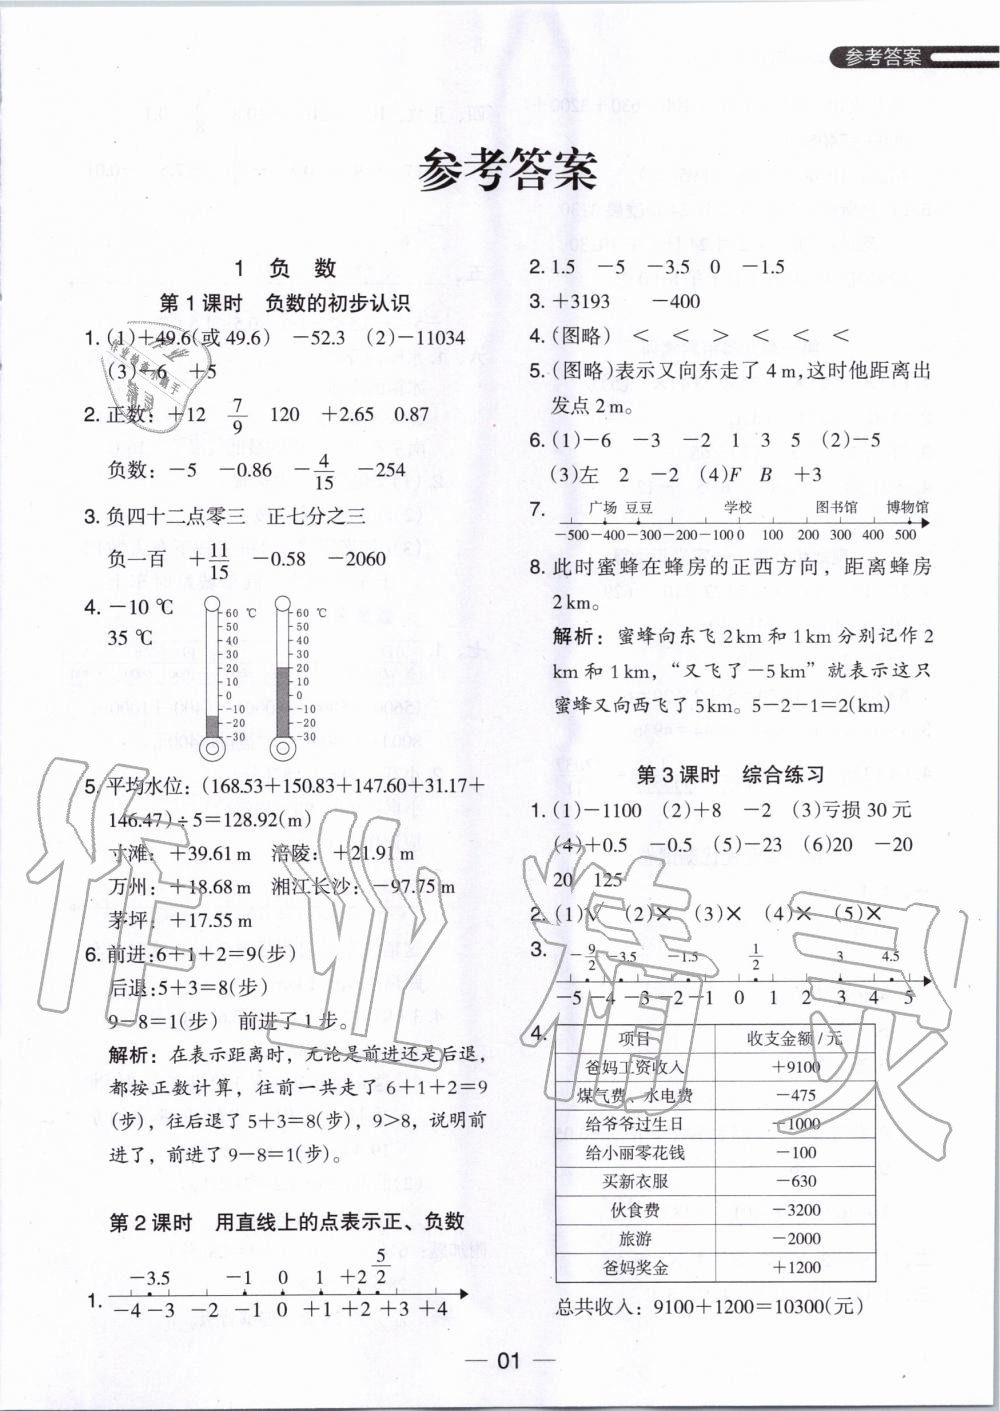 参考答案
参考答案
1 负数
第1课时 负数的初步认识
1. (1)+49.6(或49.6) -52.3 (2)-11034
(3)-6 +5
2. 正数: +12 7/9 120 +2.65 0.87
负数: -5 -0.86 -4/15 -254
3. 负四十二点零三 正七分之三
负一百 +11/15 -0.58 -2060
4. -10 ℃
35 ℃
60 ℃ 60 ℃
50 50
40 40
30 30
20 20
10 10
0 0
-10 -10
-20 -20
-30 -30
5. 平均水位: (168.53+150.83+147.60+31.17+
146.47)÷5=128.92(m)
寸滩: +39.61 m 涪陵: +21.91 m
万州: +18.68 m 湘江长沙: -97.75 m
茅坪: +17.55 m
6. 前进:6+1+2=9(步)
后退:5+3=8(步)
9-8=1(步) 前进了1步。
解析: 在表示距离时, 无论是前进还是后退,
都按正数计算, 往前一共走了6+1+2=9
(步), 往后退了5+3=8(步), 9>8, 说明前
进了, 前进了9-8=1(步)。
第2课时 用直线上的点表示正、负数
1. -3.5 -1 0 1 +2 5/2
-4 -3 -2 -1 0 +1 +2 +3 +4
2. 1.5 -5 -3.5 0 -1.5
3. +3193 -400
4. (图略) < < > < < <
5. (图略)表示又向东走了4 m,这时他距离出
发点2 m。
6. (1)-6 -3 -2 1 3 5 (2)-5
(3)左 2 -2 (4)F B +3
7. 广场 豆豆 学校 图书馆 博物馆
-500 -400 -300 -200 -100 0 100 200 300 400 500
8. 此时蜜蜂在蜂房的正西方向, 距离蜂房
2 km。
解析: 蜜蜂向东飞2 km和1 km分别记作2
km和1 km, “又飞了-5 km”就表示这只
蜜蜂又向西飞了5 km。5-2-1=2(km)
第3课时 综合练习
1. (1)-1100 (2)+8 -2 (3)亏损30元
(4)+0.5 -0.5 (5)-23 (6)20 -20
20 125
2. (1)√ (2)× (3)× (4)× (5)×
3. -9/2 -3.5 -1.5 1/2 3 4.5
-5 -4 -3 -2 -1 0 1 2 3 4 5
4. 项目 收支金额/元
爸妈工资收入 +9100
煤气费、水电费 -475
给爷爷过生日 -1000
给小丽零花钱 -100
买新衣服 -630
伙食费 -3200
旅游 -2000
爸妈奖金 +1200
总共收入: 9100+1200=10300(元)
— 01 —
作业精灵